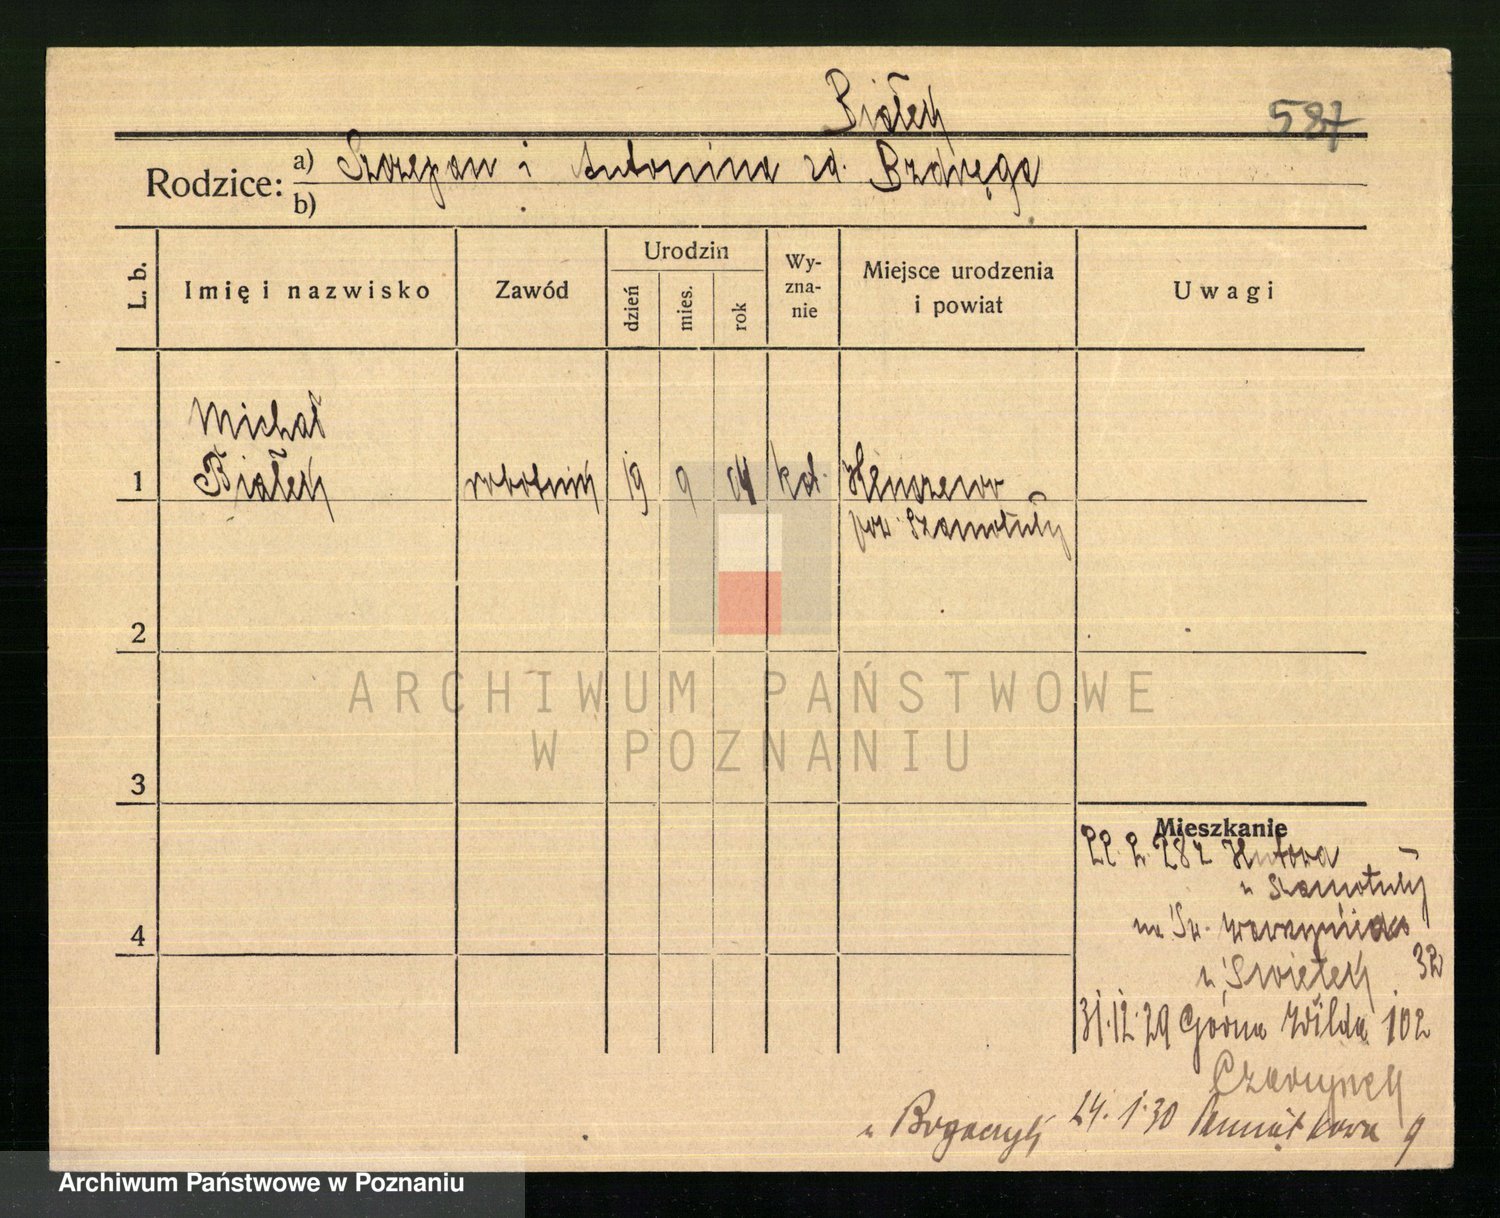 Białek
587
Rodzice: a) Szczepan i Antonina zd. Bzdręga
b)
L. b.
Imię i nazwisko
Zawód
Urodzin
dzień
mies.
rok
Wy-
zna-
nie
Miejsce urodzenia
i powiat
Uwagi
Michał
1 Białek robotnik 19 9 04 kat.
pow. Szamotuły
2
3
4
Mieszkanie
287
z Szamotuły
na Św. Wawrzyniaka 32
u Świetek
31.12.29 Górna Wilda 102
u 24.1.30 9
ARCHIWUM PAŃSTWOWE
W POZNANIU
Archiwum Państwowe w Poznaniu